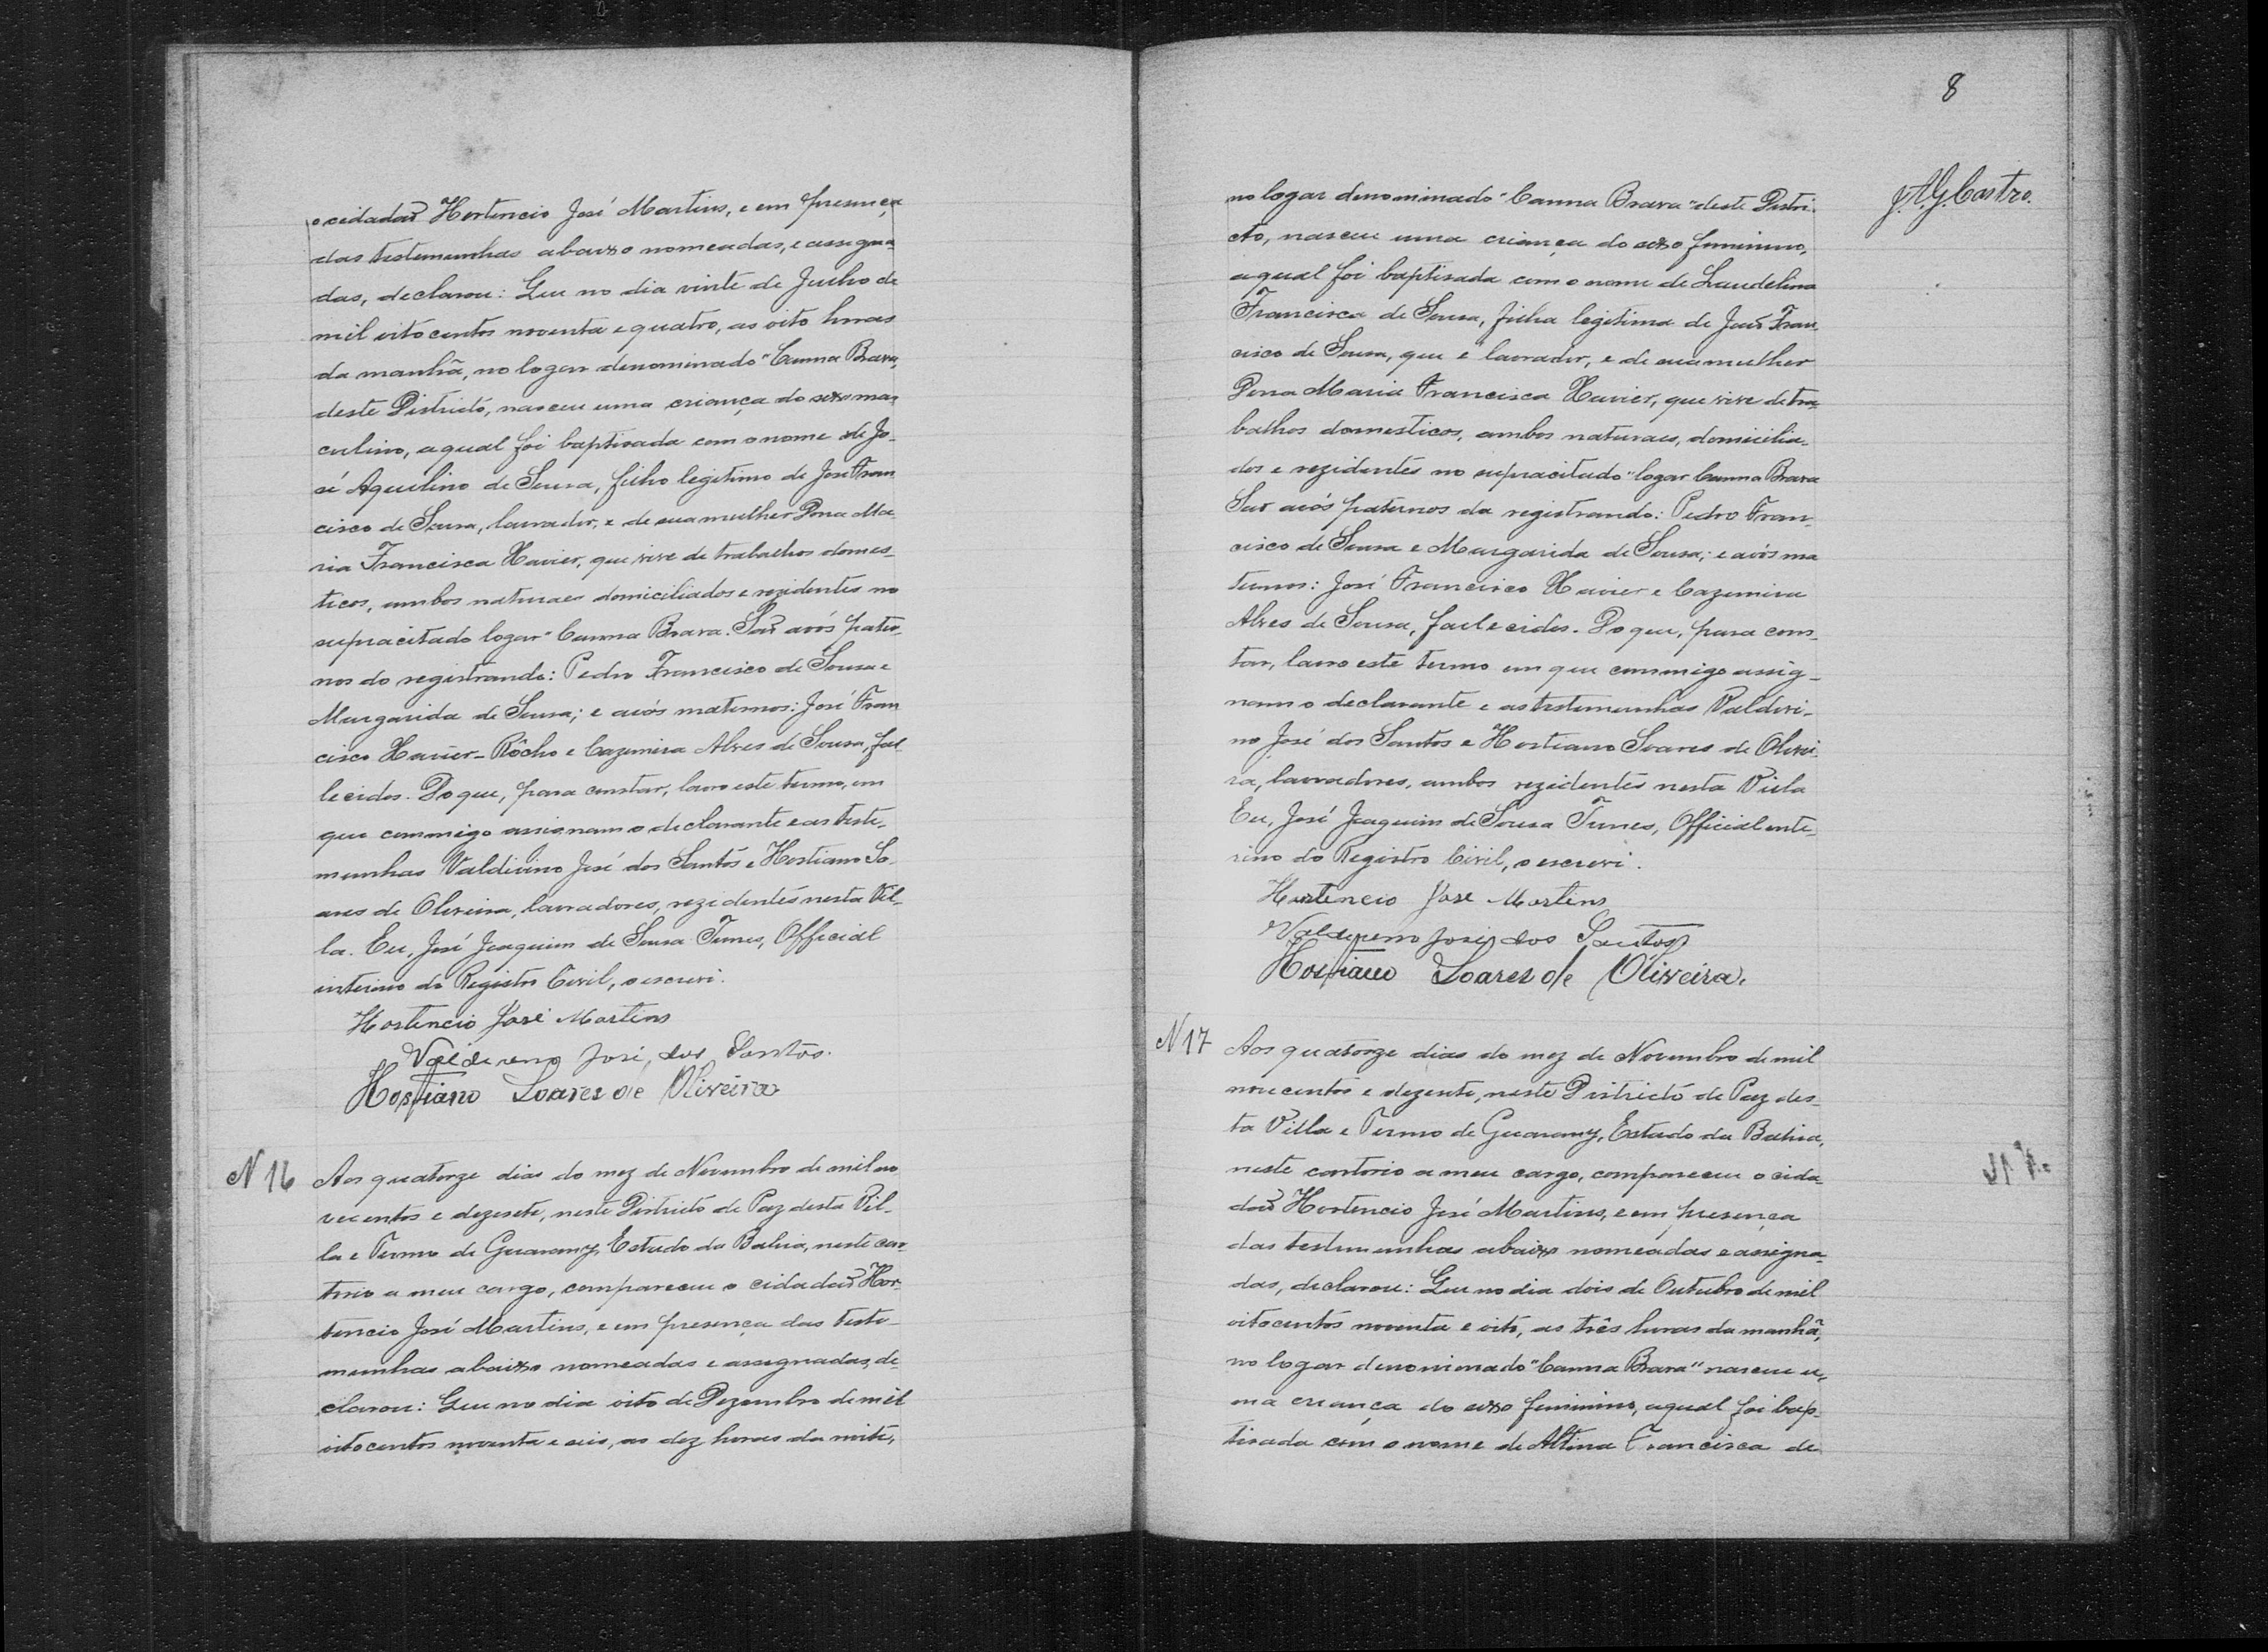 o cidadaõ Hortencio José Martins, e em presença
das testemunhas abaixo nomeadas, e assigna-
das, declarou: Que no dia vinte de Junho de
mil oito centos noventa e quatro, as oito horas
da manhã, no logar denominado "Canna Brava,
deste Districto, nasceu uma criança do sexo mas-
culino, a qual foi baptisada com o nome de Jo-
sé Aquilino de Sousa, filho legitimo de José Fran
cisco de Sousa, lavrador, e de sua mulher Dona Ma-
ria Francisca Xavier, que vive de trabalhos domes-
ticos, ambos naturaes domiciliados e rezidentes no
supracitado logar "Canna Brava. Saõ avós pater-
nos do registrando: Pedro Francisco de Sousa e
Margarida de Sousa; e avós maternos: José Fran
cisco Xavier-Rôcho e Cazimira Alves de Sousa, fal-
lecidos. Do que, para constar, lavro este termo, em
que commigo assignam o declarante e as teste-
munhas Valdivino José dos Santos e Hostiano So-
ares de Oliveira, lavradores, rezidentes nesta Vil-
la. Eu, José Joaquim de Sousa Tunes, Official
interino do Registro Civil, o escrevi.
Hortencio José Martins
Valdereno José dos Santos.
Hostiano Soares de Oliveira
N 16
Aos quatorze dias do mez de Novembro de mil no
vecentos e dezesete, neste Districto de Paz desta Vil-
la e Termo de Guarany, Estado da Bahia, neste car-
torio a meu cargo, compareceu o cidadaõ Hor-
tencio José Martins, e em presença das teste-
munhas abaixo nomeadas e assignadas, de-
clarou: Que no dia oito de Dezembro de mil
oito centos noventa e seis, as dez horas da noite,
8
J. A. G. Castro.
no logar denominado "Canna Brava" deste Distri-
cto, nasceu uma criança do sexo feminino,
a qual foi baptisada com o nome de Laudelina
Francisca de Sousa, filha legitima de José Fran
cisco de Sousa, que é lavrador, e de sua mulher
Dona Maria Francisca Xavier, que vive de tra-
balhos domesticos, ambos naturaes, domicilia-
dos e rezidentes no supracitado "logar Canna Brava
Saõ avós paternos da registrando: Pedro Fran-
cisco de Sousa e Margarida de Sousa; e avós ma
ternos: José Francisco Xavier e Cazemira
Alves de Sousa, fallecidos. Do que, para cons-
tar, lavro este termo em que commigo assig-
nam o declarante e as testemunhas Valdivi-
no José dos Santos e Hostiano Soares de Olivei-
ra, lavradores, ambos rezidentes nesta Villa
Eu, José Joaquim de Sousa Tunes, Official inte-
rino do Registro Civil, o escrevi.
Hortencio José Martins
Valdereno José dos Santos
Hostiano Soares de Oliveira.
N 17
Aos quatorze dias do mez de Novembro de mil
novecentos e dezesete, neste Districto de Paz des-
ta Villa e Termo de Guarany, Estado da Bahia,
neste cartorio a meu cargo, compareceu o cida-
daõ Hortencio José Martins, e em presença
das testemunhas abaixo nomeadas e assigna-
das, declarou: Que no dia dois de Outubro de mil
oitocentos noventa e oito, as três horas da manhã,
no logar denominado "Canna Brava" nasceu u-
ma criança do sexo feminino, a qual foi bap-
tisada com o nome de Altina Francisca de